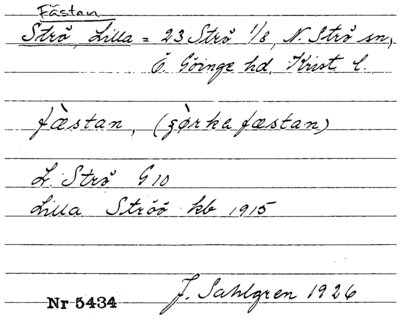 Fästan
Strö, Lilla = 23 Strö 1/8, N. Strö sn,
Ö. Göinge hd, Krist. l.
fæ̀stan, (çø̀rka fæstan)
L. Strö G10
Lilla Ströö kb 1915
J. Sahlgren 1926
Nr 5434